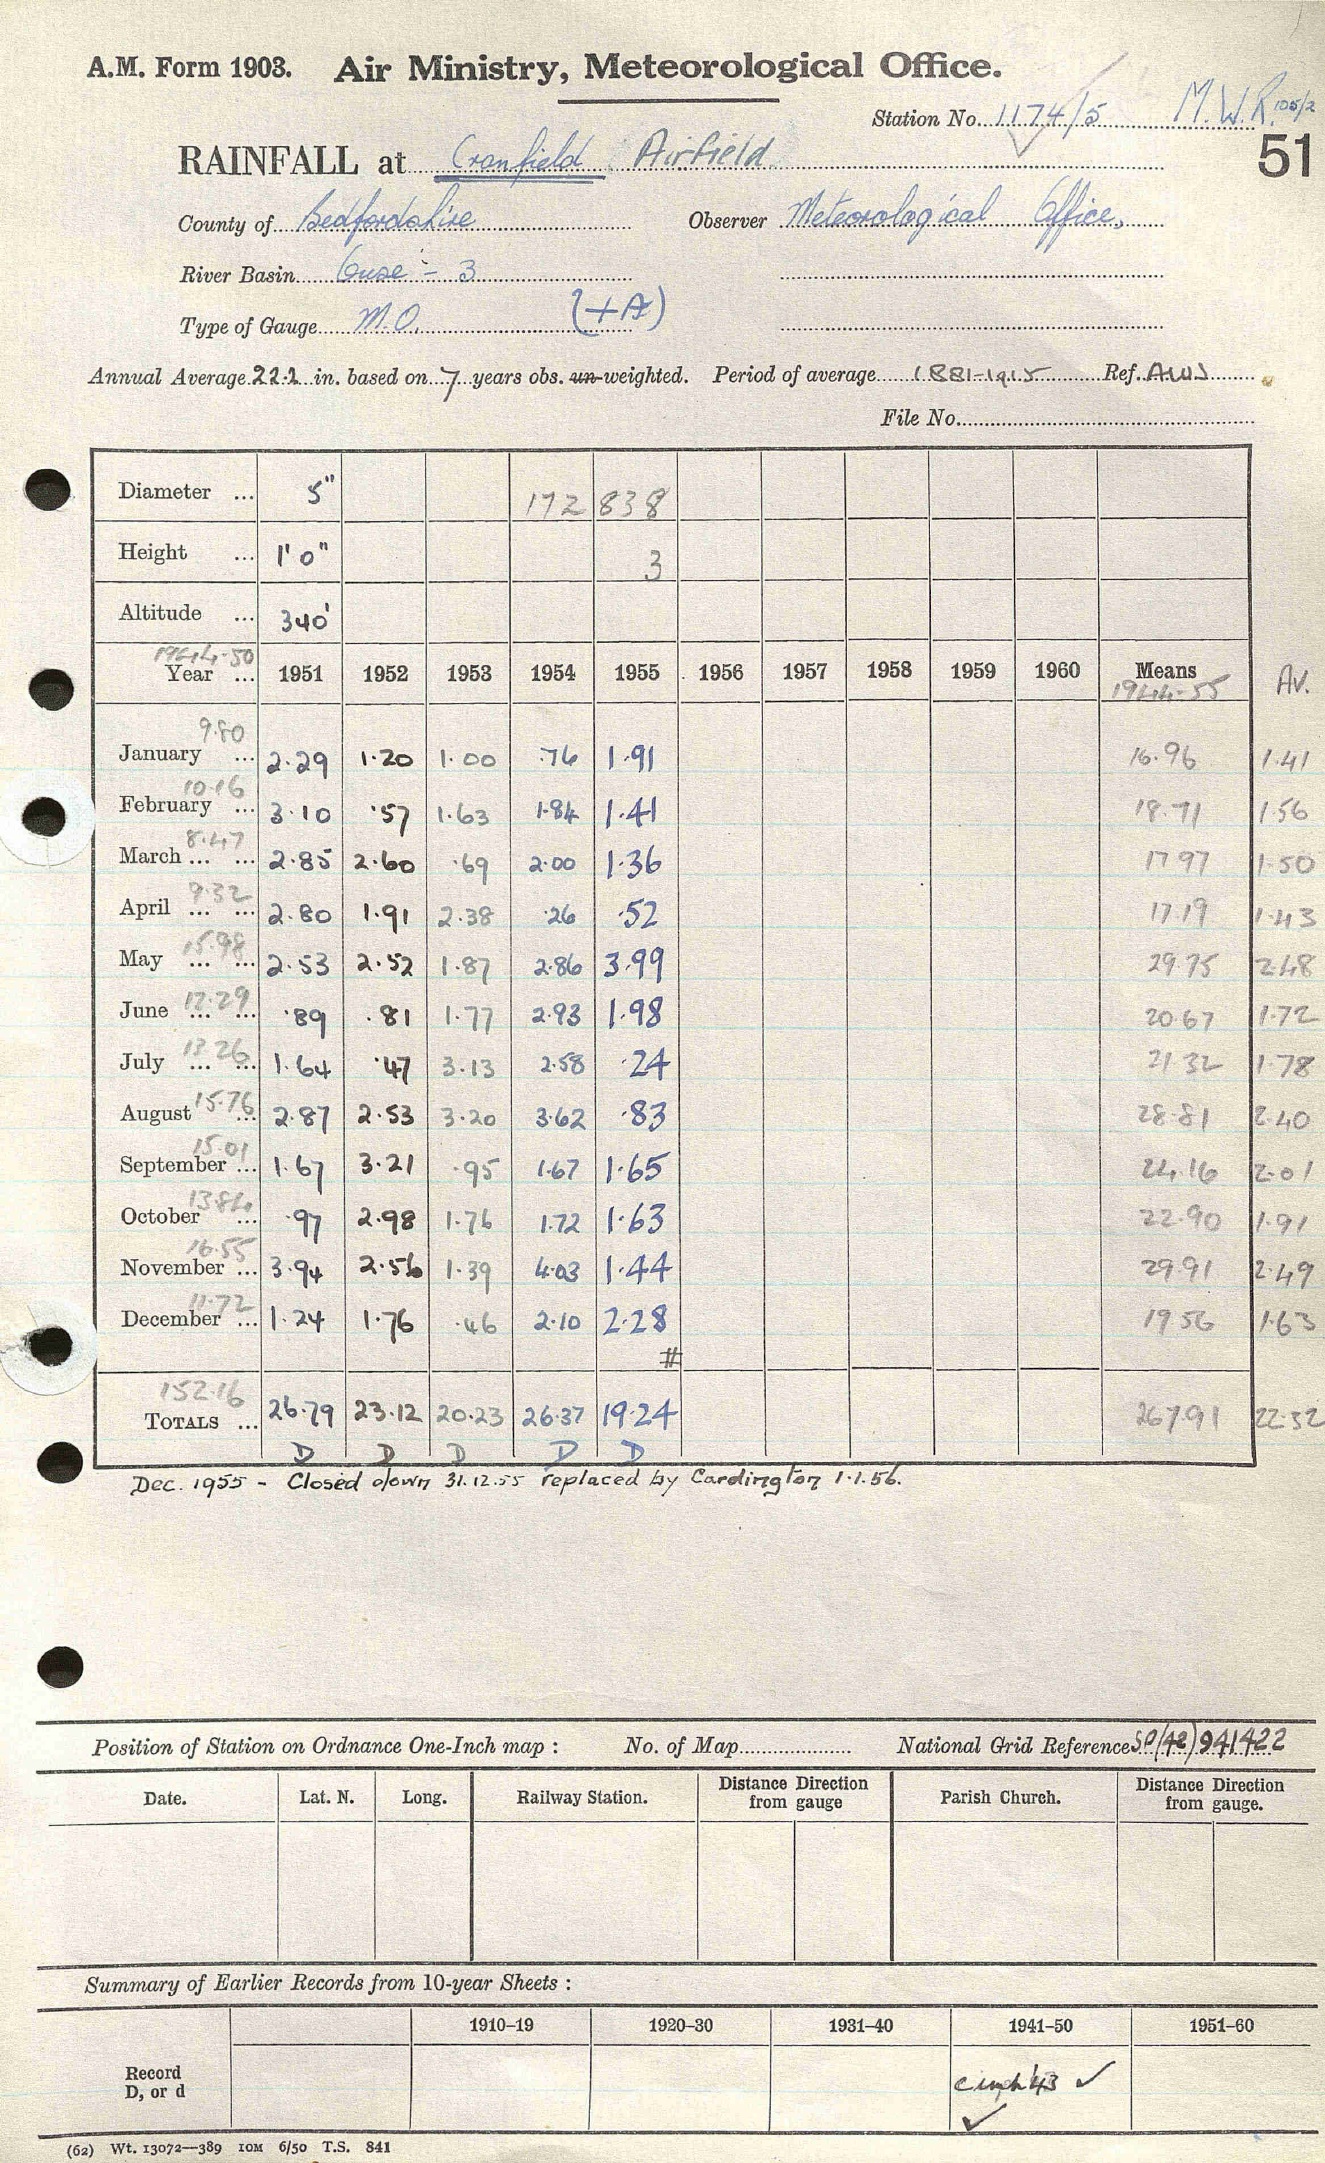 A.M. Form 1903. Air Ministry, Meteorological Office.
Station No. 1174/5 M.W.R. 105/2
RAINFALL at Cranfield Airfield 51
County of Bedfordshire Observer Meteorological Office,
River Basin Ouse - 3
Type of Gauge M.O. (+A)
Annual Average 22.2 in. based on 7 years obs. un-weighted. Period of average 1881-1915 Ref.
File No.
Diameter ... 5" 172 838
Height ... 1' 0" 3
Altitude ... 340'
1944-50
Year ... 1951 1952 1953 1954 1955 1956 1957 1958 1959 1960 Means 1944-55 Av.
January ... 9.80 2.29 1.20 1.00 .76 1.91 16.96 1.41
February ... 10.16 3.10 .57 1.63 1.84 1.41 18.71 1.56
March ... ... 8.47 2.85 2.60 .69 2.00 1.36 17.97 1.50
April ... ... 9.32 2.80 1.91 2.38 .26 .52 17.19 1.43
May ... ... 15.98 2.53 2.52 1.87 2.86 3.99 29.75 2.48
June ... ... 12.29 .89 .81 1.77 2.93 1.98 20.67 1.72
July ... ... 13.26 1.64 .47 3.13 2.58 .24 21.32 1.78
August ... 15.76 2.87 2.53 3.20 3.62 .83 28.81 2.40
September ... 15.01 1.67 3.21 .95 1.67 1.65 24.16 2.01
October ... 13.84 .97 2.98 1.76 1.72 1.63 22.90 1.91
November ... 16.55 3.94 2.56 1.39 4.03 1.44 29.91 2.49
December ... 11.72 1.24 1.76 .46 2.10 2.28 19.56 1.63
#
TOTALS ... 152.16 26.79 23.12 20.23 26.37 19.24 267.91 22.32
D D D D D
Dec. 1955 - Closed down 31.12.55 replaced by Cardington 1.1.56.
Position of Station on Ordnance One-Inch map : No. of Map National Grid Reference SP/(42)941422
Date. Lat. N. Long. Railway Station. Distance Direction from gauge Parish Church. Distance Direction from gauge.
Summary of Earlier Records from 10-year Sheets :
1910-19 1920-30 1931-40 1941-50 1951-60
Record
D, or d
(62) Wt. 13072—389 10M 6/50 T.S. 841